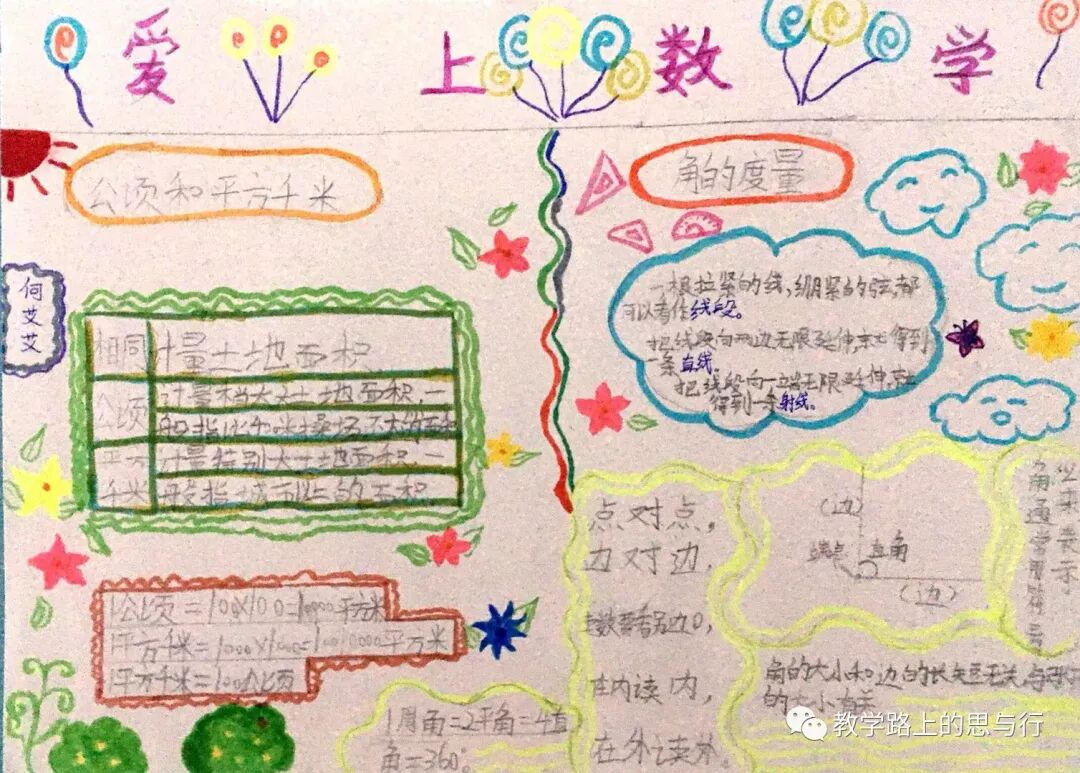 爱上数学
公顷和平方千米
何艾艾
相同 计量土地面积
公顷 计量稍大土地面积,一
般指比如操场
平方 计量特别大土地面积,一
千米 般指城市的面积
1公顷=100×100=10000平方米
1平方千米=1000×1000=1000000平方米
1平方千米=100公顷
1周角=2平角=4直
角=360°
角的度量
一根拉紧的线,绷紧的弦,都
可以看作线段。
把线段向两边无限延伸,就得到
一条直线。
把线段向一端无限延伸,就
得到一条射线。
点对点,
边对边,
数要看另边0,
内读内,
在外读外。
(边)
端点 直角
(边)
角通常用符号
来表示
角的大小和边的长短无关,与
的大小有关
教学路上的思与行